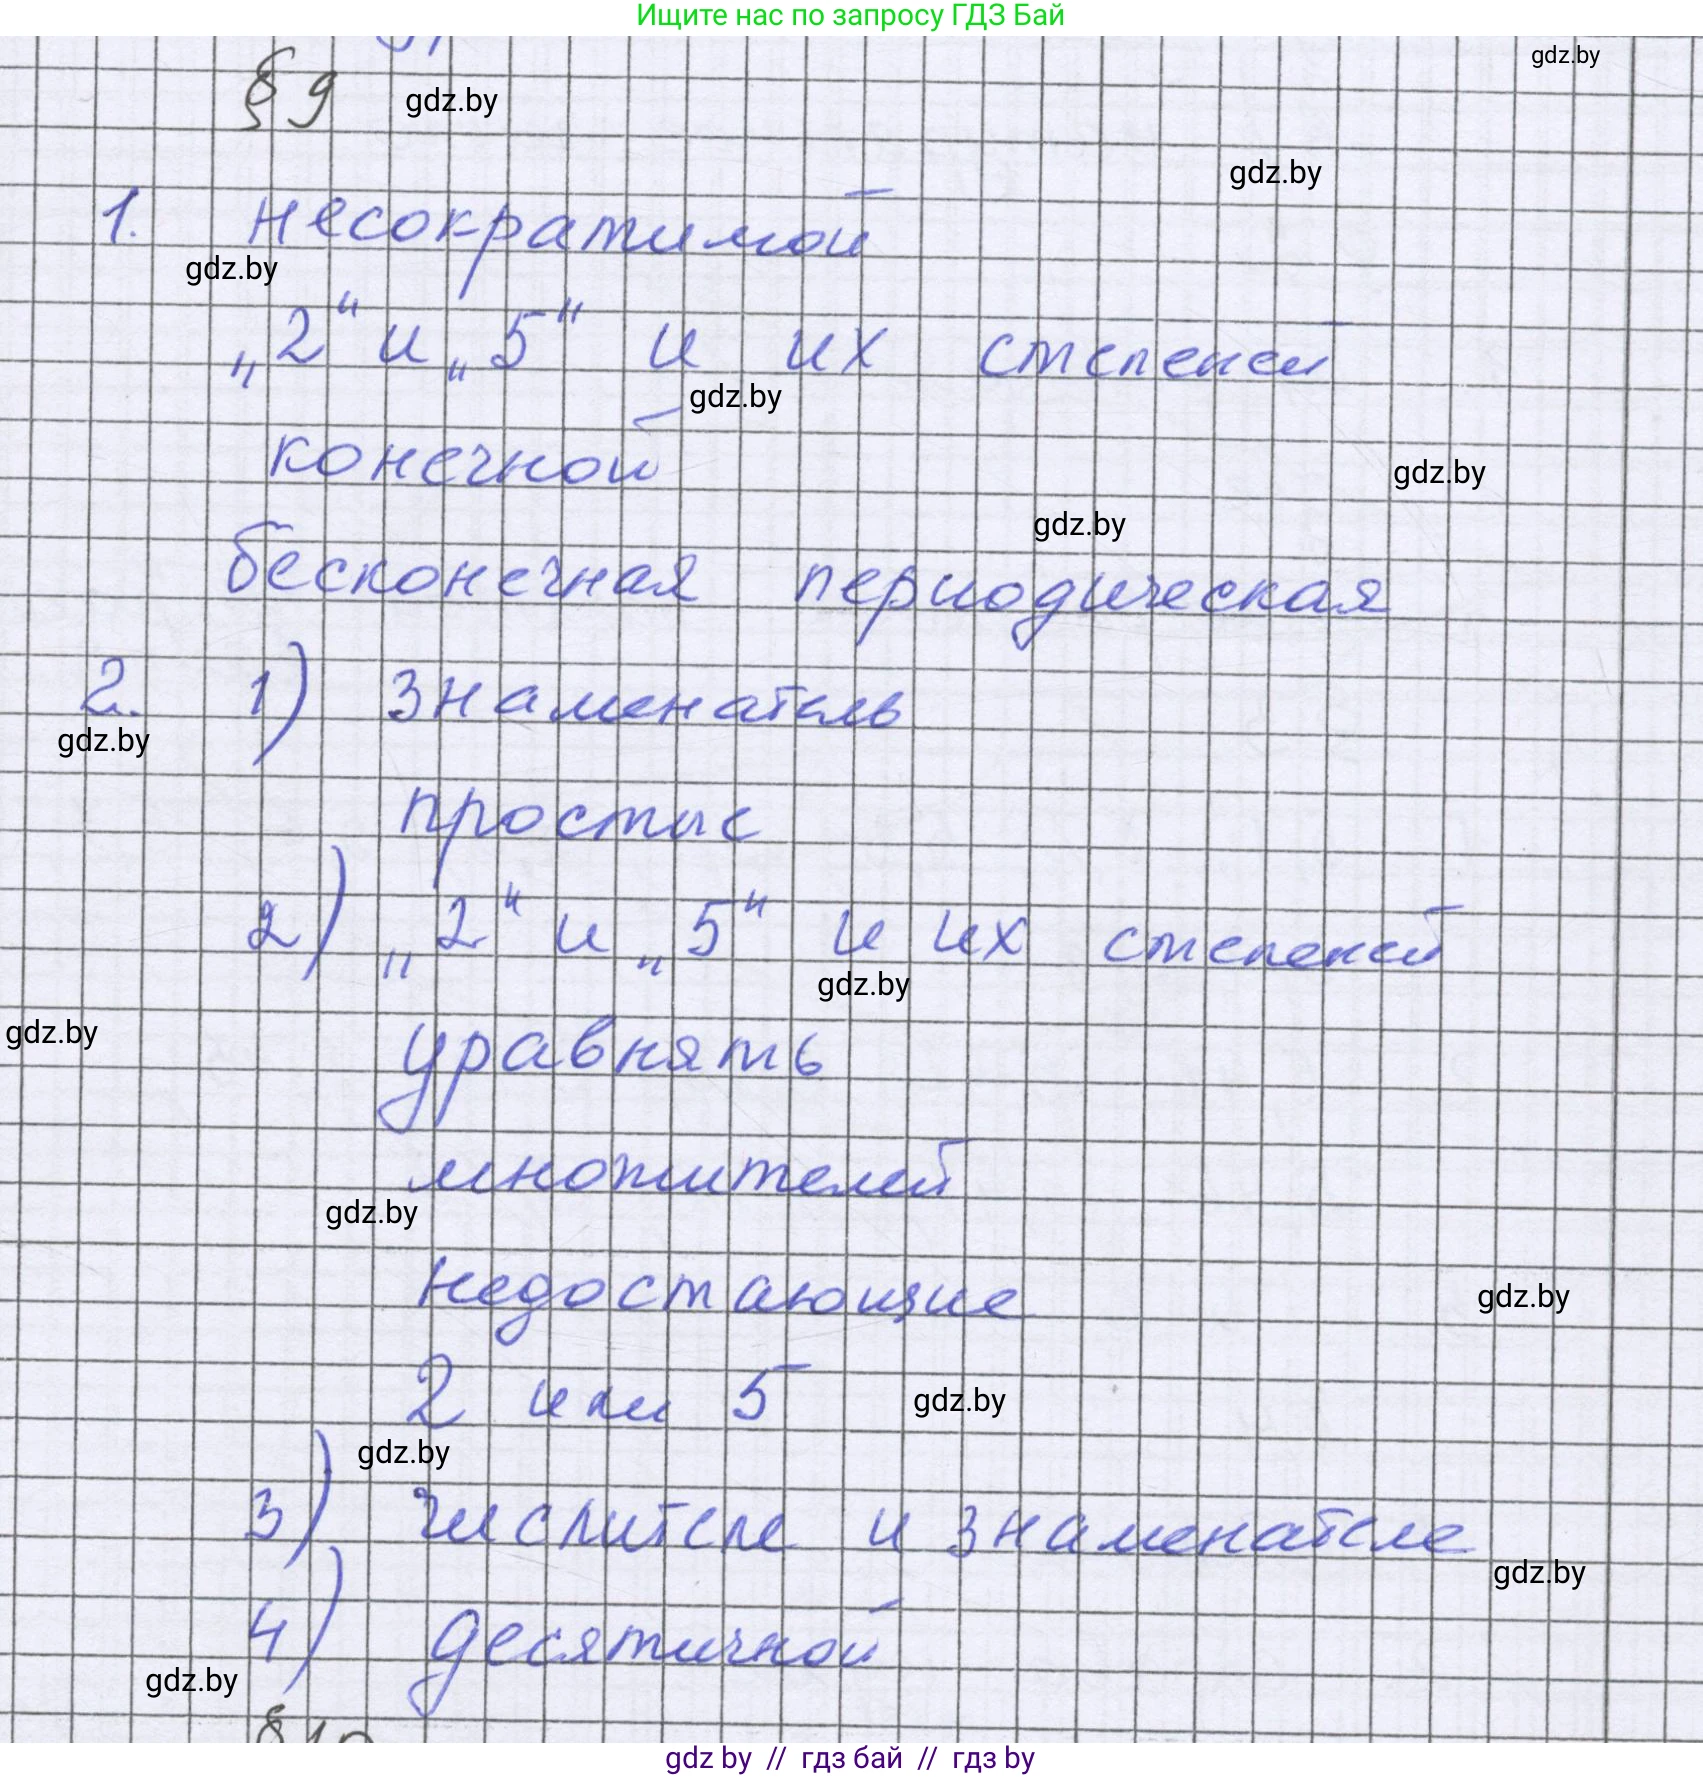 Ищите нас по запросу ГДЗ Бай
gdz.by
§ 9 gdz.by
gdz.by
1. несократимой
gdz.by
„2“ и „5“ и их степеней
gdz.by
конечной
gdz.by
gdz.by
бесконечная периодическая
2. 1) знаменатель
gdz.by
простые
2) „2“ и „5“ и их степеней
gdz.by
gdz.by
уравнять
множителей
gdz.by
недостающие
gdz.by
2 или 5
gdz.by
gdz.by
3) числителе и знаменателе
gdz.by
4) десятичной
gdz.by
gdz by // гдз бай // гдз by